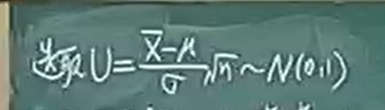 选取 U = \frac{\overline{X}-μ}{σ}\sqrt{n} ~ N(0,1)